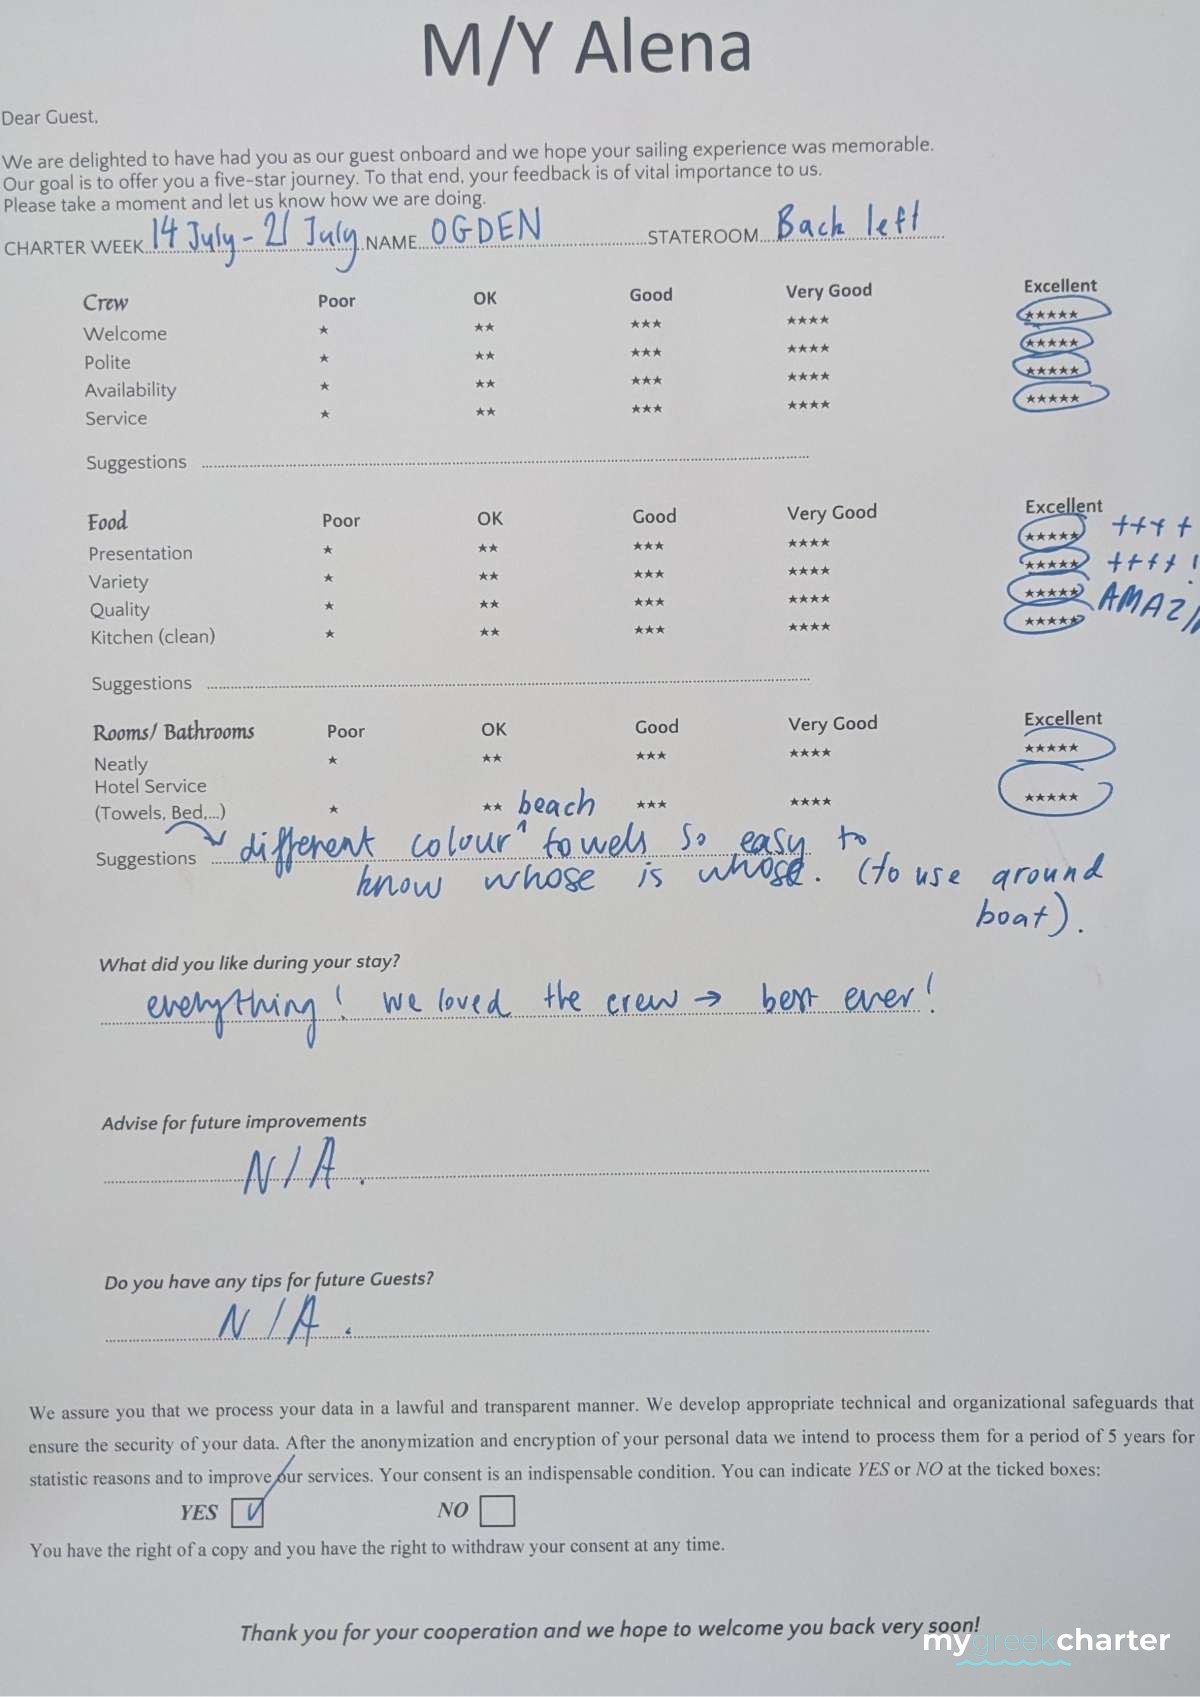 M/Y Alena
Dear Guest,
We are delighted to have had you as our guest onboard and we hope your sailing experience was memorable.
Our goal is to offer you a five-star journey. To that end, your feedback is of vital importance to us.
Please take a moment and let us know how we are doing.
CHARTER WEEK 14 July - 21 July NAME OGDEN STATEROOM Back left
Crew Poor OK Good Very Good Excellent
Welcome ★ ★★ ★★★ ★★★★ ★★★★★
Polite ★ ★★ ★★★ ★★★★ ★★★★★
Availability ★ ★★ ★★★ ★★★★ ★★★★★
Service ★ ★★ ★★★ ★★★★ ★★★★★
Suggestions
Food Poor OK Good Very Good Excellent
Presentation ★ ★★ ★★★ ★★★★ ★★★★★ ++++
Variety ★ ★★ ★★★ ★★★★ ★★★★★ ++++!
Quality ★ ★★ ★★★ ★★★★ ★★★★★
Kitchen (clean) ★ ★★ ★★★ ★★★★ ★★★★★
Suggestions
Rooms/ Bathrooms Poor OK Good Very Good Excellent
Neatly ★ ★★ ★★★ ★★★★ ★★★★★
Hotel Service
(Towels, Bed,...) ★ ★★ ★★★ ★★★★ ★★★★★
beach
Suggestions different colour ^ towels so easy to
know whose is whose. (to use around
boat).
What did you like during your stay?
everything! we loved the crew → best ever!
Advise for future improvements
N/A.
Do you have any tips for future Guests?
N/A.
We assure you that we process your data in a lawful and transparent manner. We develop appropriate technical and organizational safeguards that
ensure the security of your data. After the anonymization and encryption of your personal data we intend to process them for a period of 5 years for
statistic reasons and to improve our services. Your consent is an indispensable condition. You can indicate YES or NO at the ticked boxes:
YES NO
You have the right of a copy and you have the right to withdraw your consent at any time.
Thank you for your cooperation and we hope to welcome you back very soon!
mygreekcharter